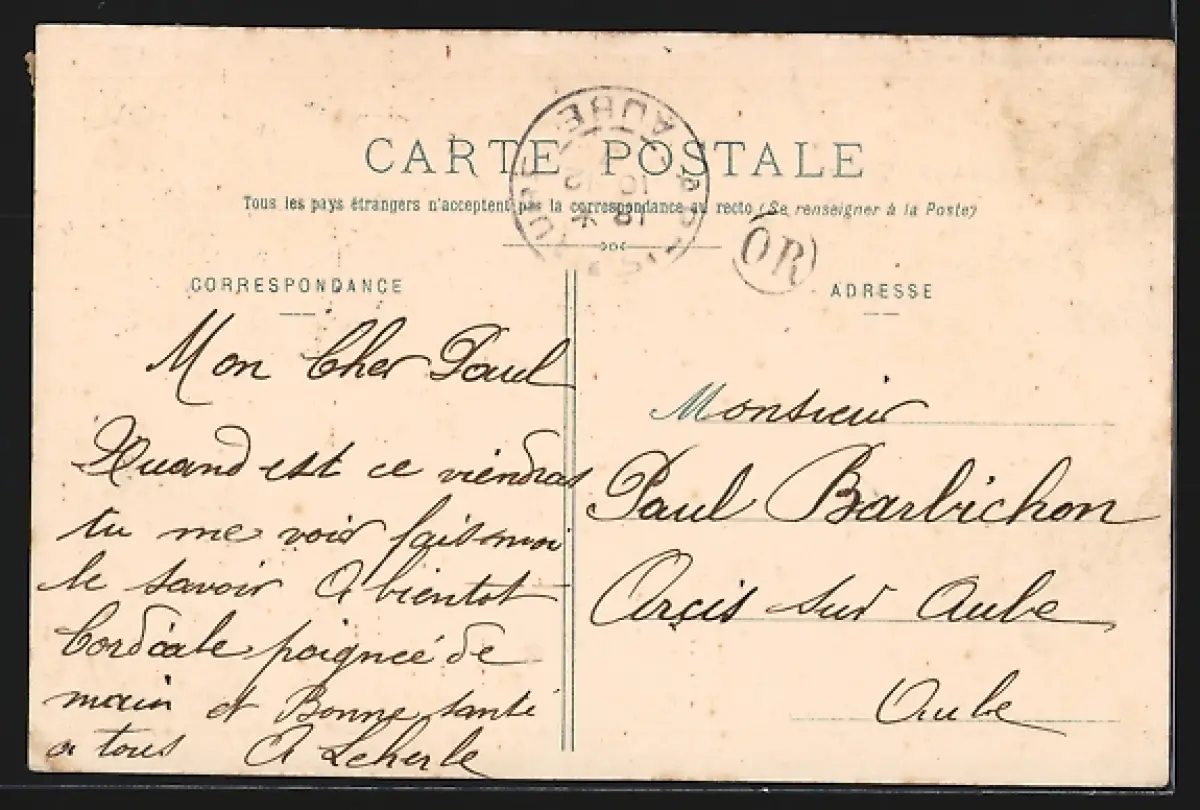 CARTE POSTALE
Tous les pays étrangers n'acceptent pas la correspondance au recto (Se renseigner à la Poste)
OR
CORRESPONDANCE
Mon Cher Paul
Quand est ce viendras
tu me voir fais moi
le savoir A bientot
Cordiale poignée de
main et Bonne santé
a tous A Leherle
ADRESSE
Monsieur
Paul Barbichon
Arçis sur Aube
Aube
AUBE